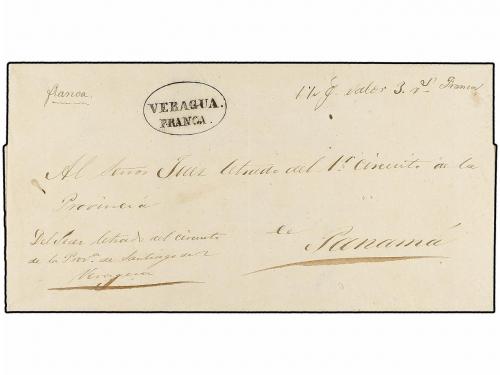 franca.
VERAGUA.
FRANCA.
valor 3. rs. Franca
Al Señor Juez letrado del 1r. Circuito de la
Provincia
de
Panamá
Del Juez letrado del circuito
de la Prova. de Santiago de
Veragua